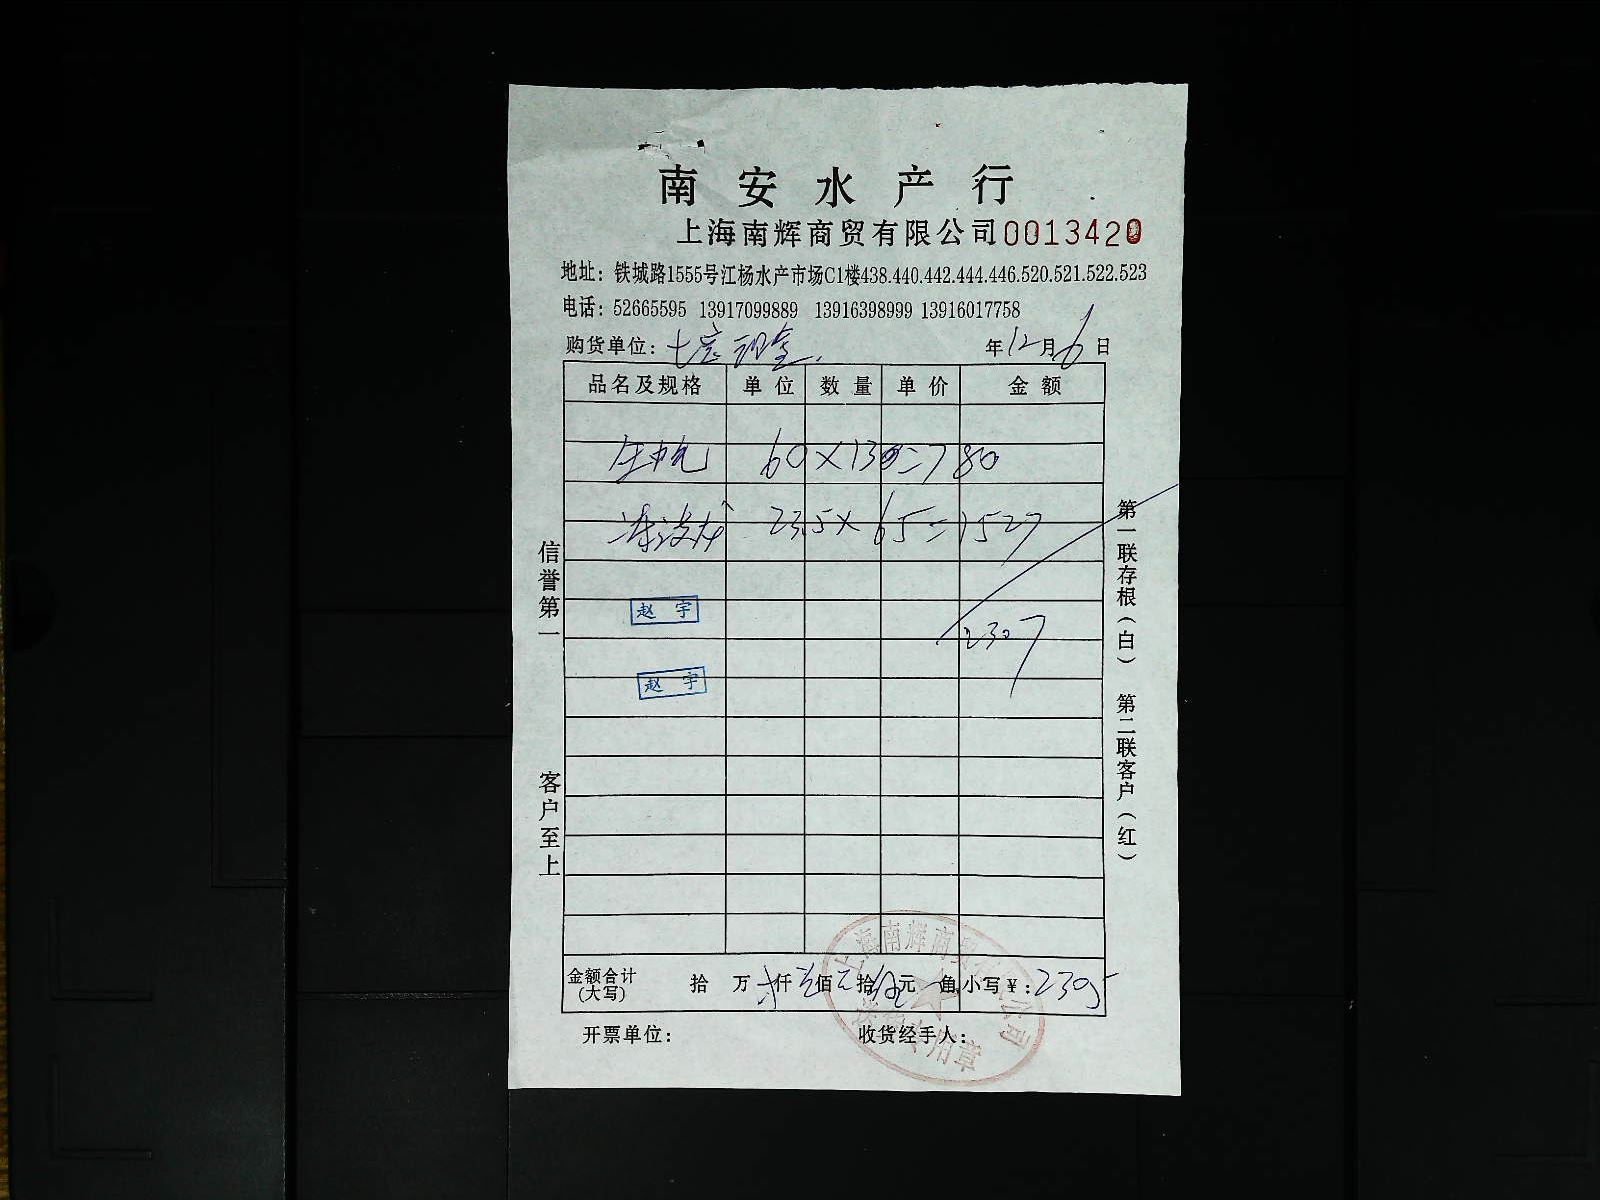 南安水产行
上海南辉商贸有限公司 0013420
地址：铁城路1555号江杨水产市场C1楼438.440.442.444.446.520.521.522.523
电话：52665595 13917099889 13916398999 13916017758
购货单位： 年12月6日
品名及规格 单位 数量 单价 金额
60×130=780
23.5×65=1527
赵宇
2307
赵宇
信誉第一
客户至上
第一联存根（白） 第二联客户（红）
金额合计（大写） 拾 万 仟 佰 拾 元 角 小写￥：2305
开票单位： 收货经手人：